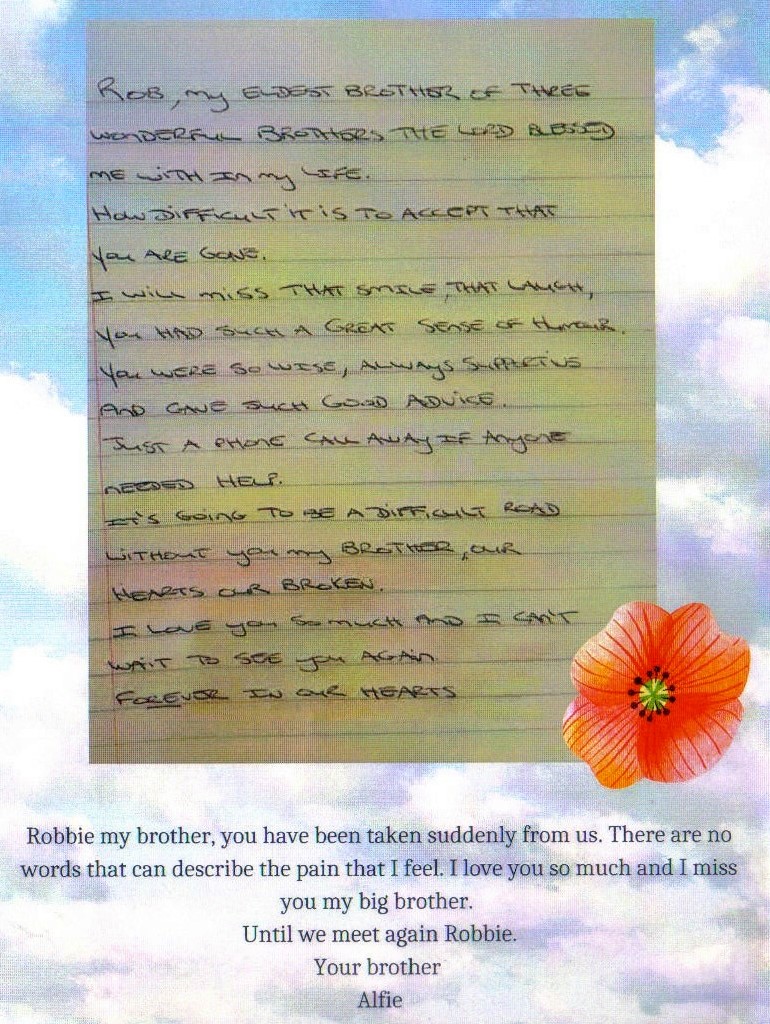 Rob, my ELDEST BROTHER OF THREE
WONDERFUL BROTHERS THE LORD BLESSED
ME WITH IN my LIFE.
HOW DIFFICULT IT IS TO ACCEPT THAT
you ARE GONE.
I WILL MISS THAT SMILE, THAT LAUGH,
you HAD SUCH A GREAT SENSE OF Humour.
you WERE SO WISE, ALWAYS SUPPORTIVE
AND GAVE SUCH GOOD ADVICE.
JUST A PHONE CALL AWAY IF Anyone
NEEDED HELP.
IT'S GOING TO BE A DIFFICULT ROAD
WITHOUT you my BROTHER, OUR
HEARTS OUR BROKEN.
I LOVE you So much AND I CAN'T
WAIT TO SEE you AGAIN.
FOREVER IN OUR HEARTS
Robbie my brother, you have been taken suddenly from us. There are no
words that can describe the pain that I feel. I love you so much and I miss
you my big brother.
Until we meet again Robbie.
Your brother
Alfie